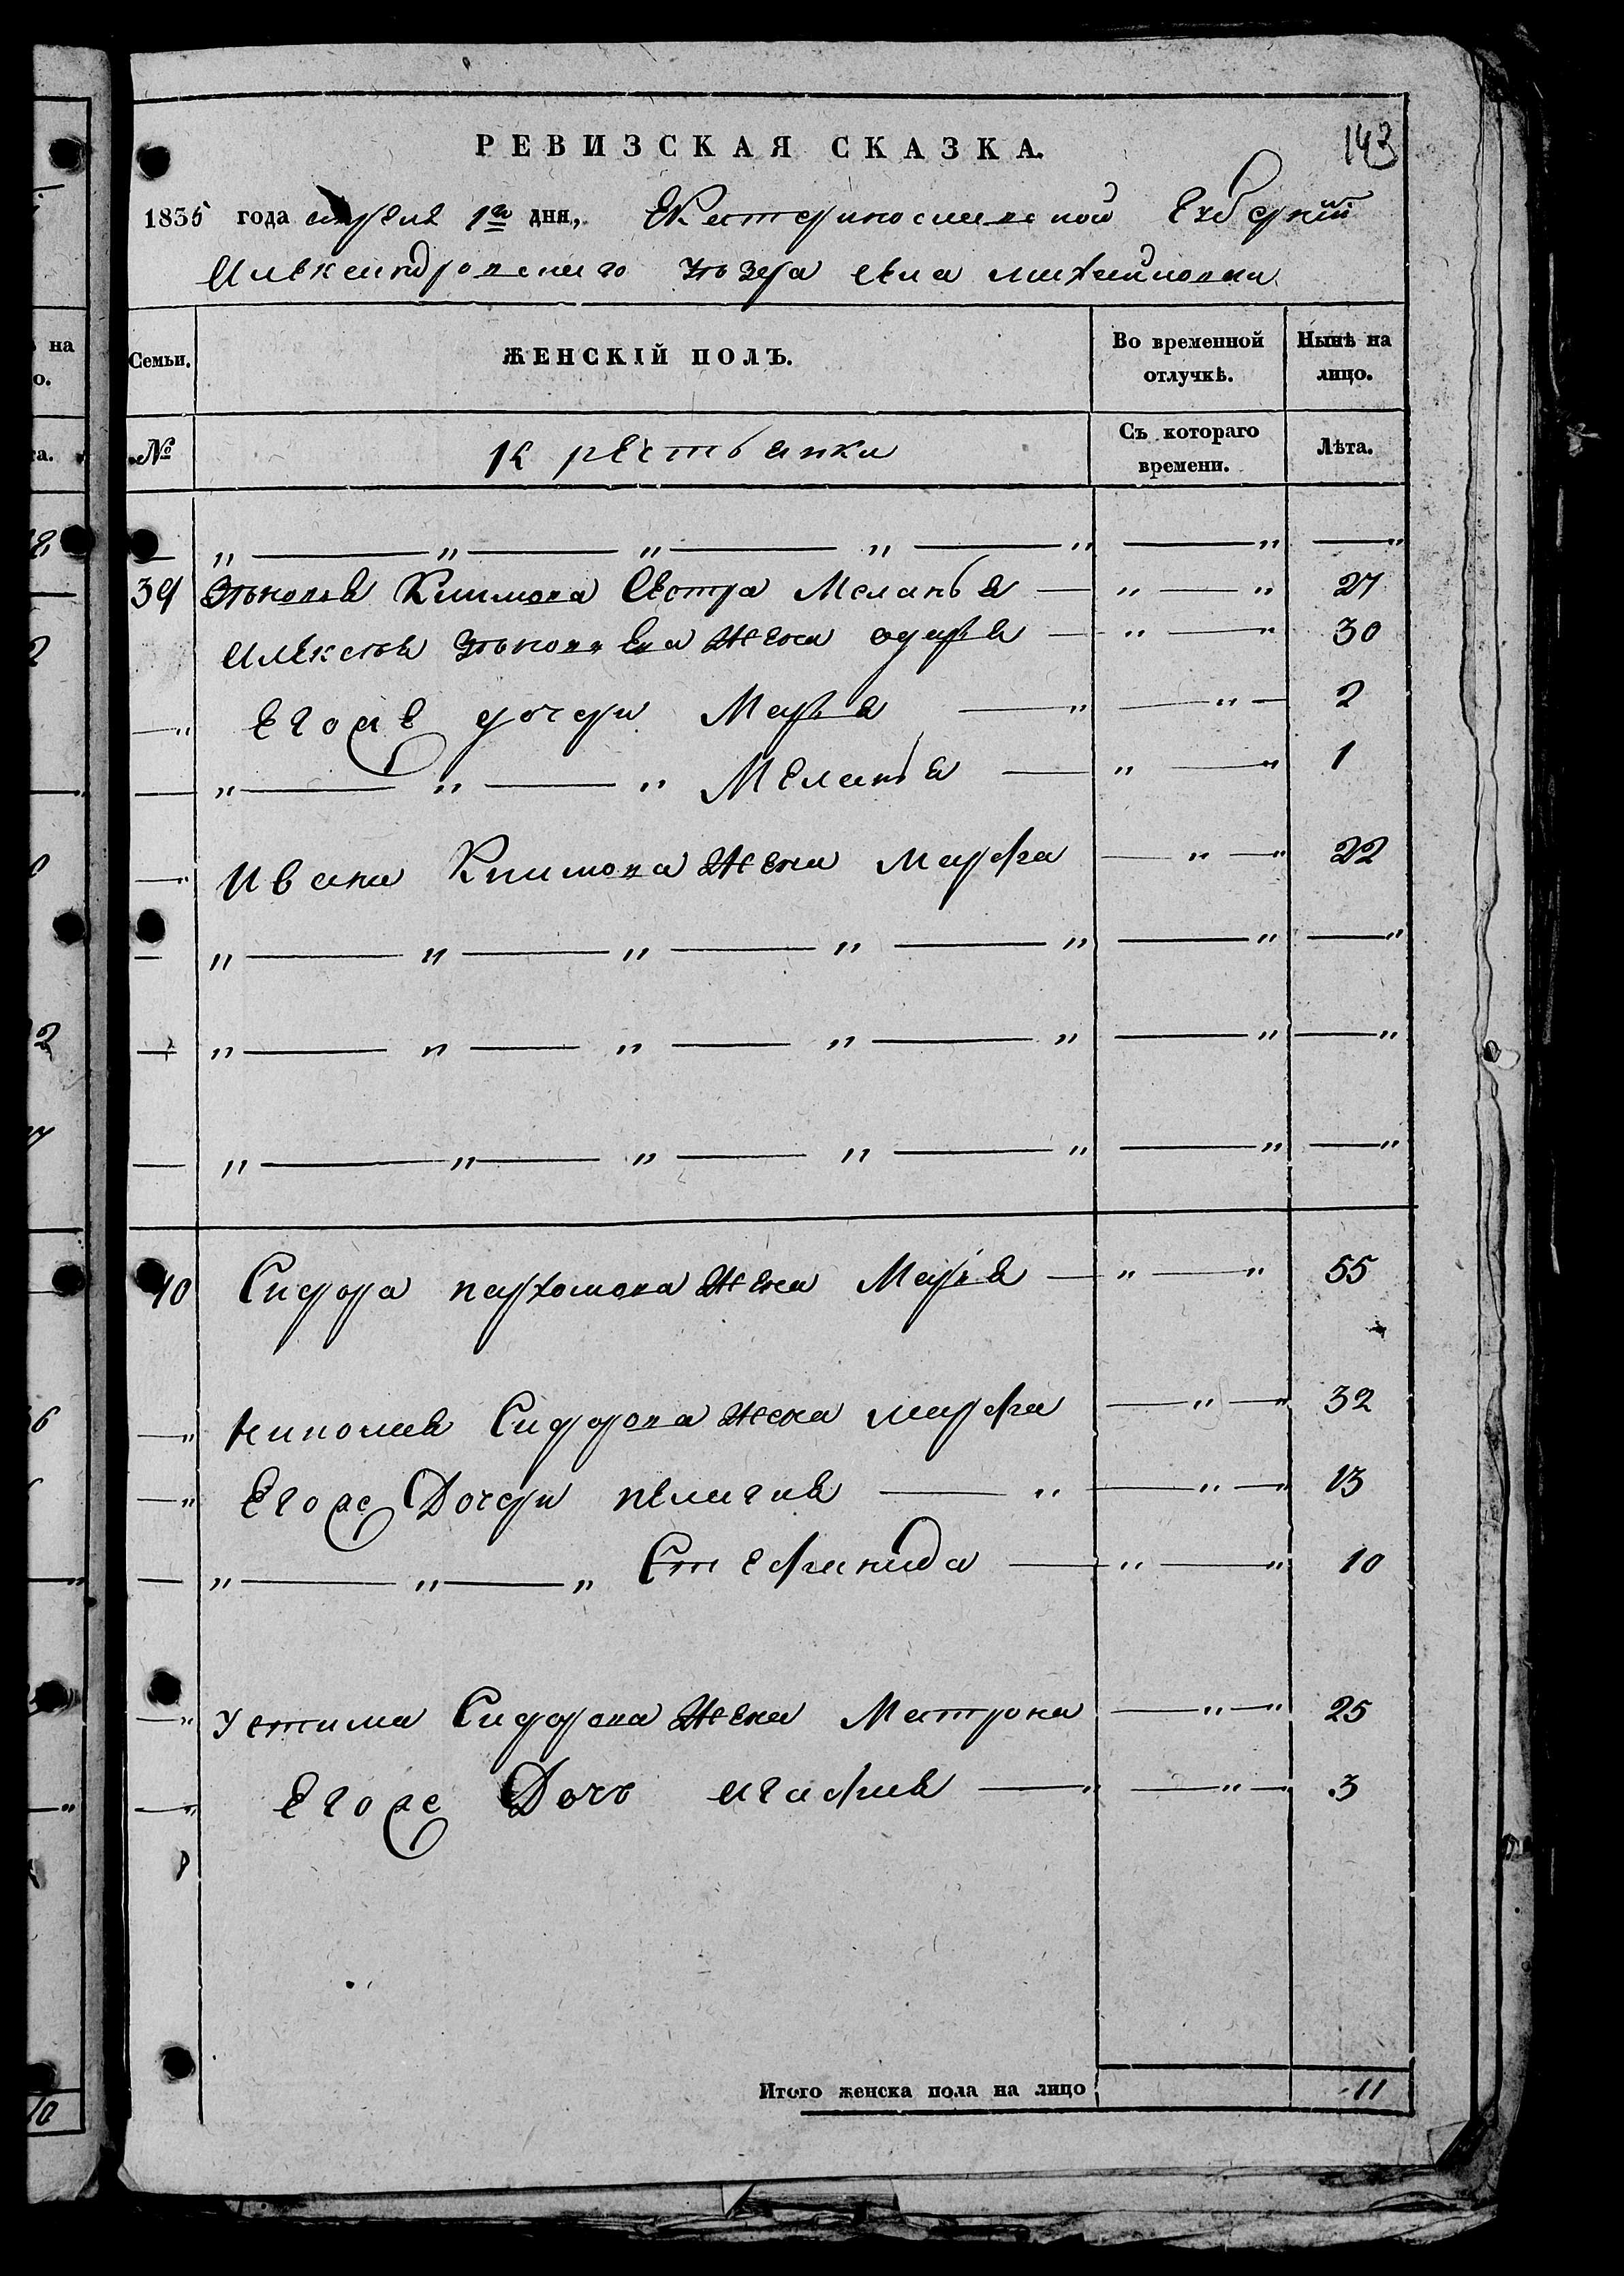 РЕВИЗСКАЯ СКАЗКА.
143
1835 года апреля 1го дня, Екатеринославской Губернии
Александровскаго уезда села михайловки
Семьи.
ЖЕНСКІЙ ПОЛЪ.
Во временной отлучкѣ.
Нынѣ на лицо.
№
Крестьянки
Съ котораго времени.
Лѣта.
„ — „ — „ — „ — „ — „ — „
39 Климова Сестра Меланья — „ — „ 27
Алексея жена одарья — „ — „ 30
— „ Егоже дочери Марья — „ — „ — 2
— „ — „ — „ Меланья — „ — „ 1
— „ Ивана Климова жена марфа — „ — „ 22
— „ — „ — „ — „ — „ — „ — „
— „ — „ — „ — „ — „ — „ — „
— „ — „ — „ — „ — „ — „ — „
40 Сидора пархомова жена Марья — „ — „ 55
— „ николая Сидорова жена марфа — „ — „ 32
— „ Егоже Дочери пелагия — „ — „ — „ 13
— „ — „ — „ Стефанида — „ — „ 10
— „ устима Сидорова жена Матрона — „ — „ 25
— „ Егоже Дочь агафия — „ — „ — 3
Итого женска пола на лицо 11
на
о.
а.
2
2
6
10